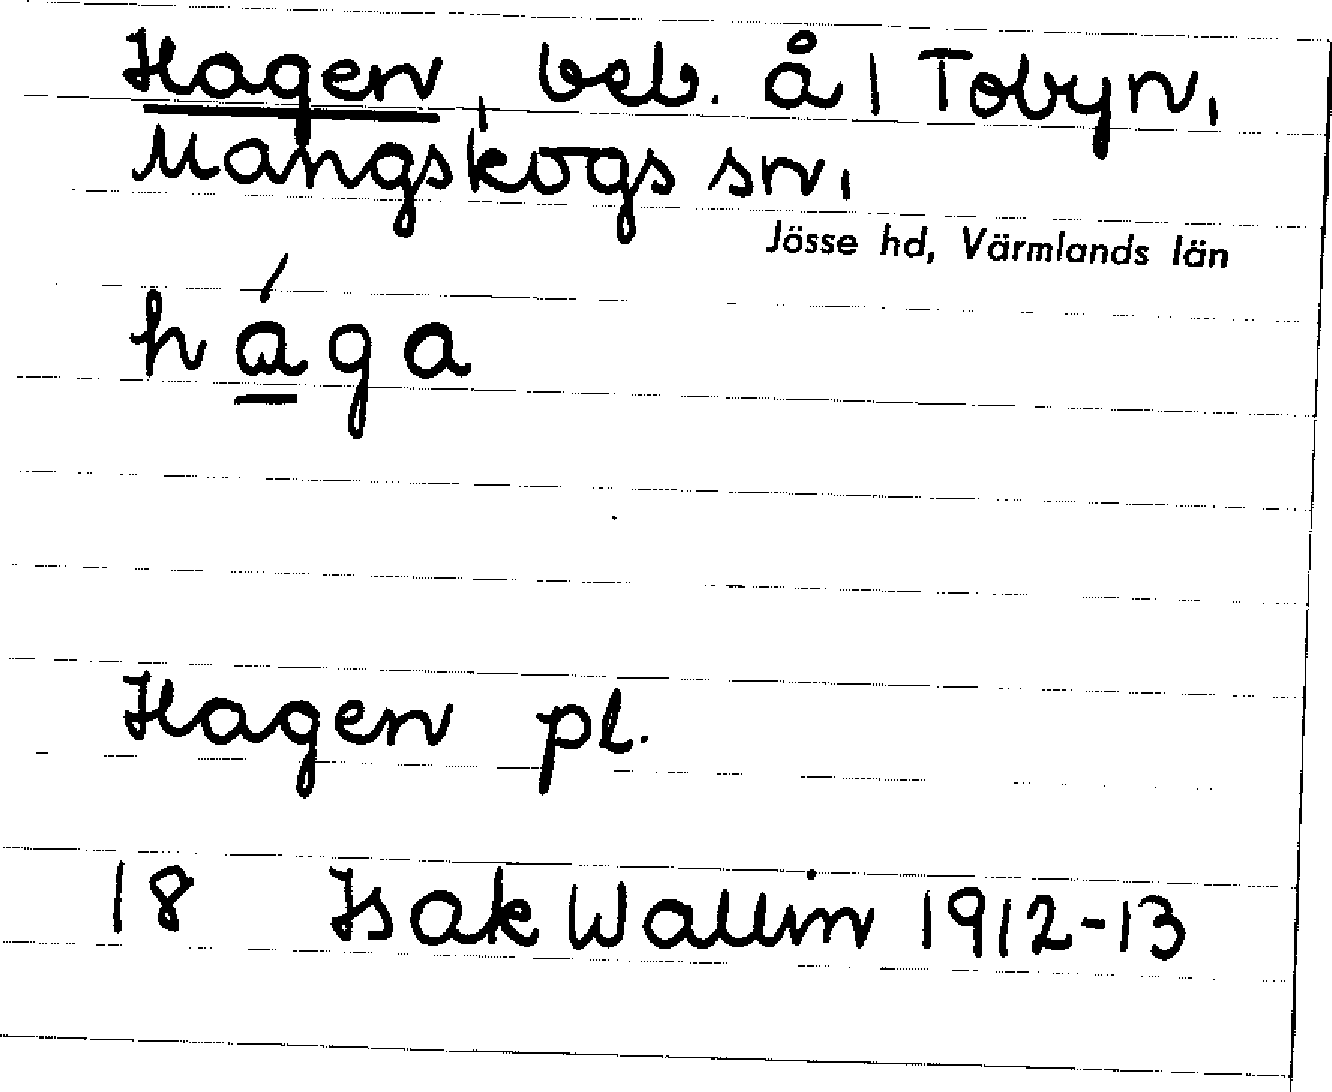 Hagen, beb. å 1 Tobyn,
Mangskogs sn,
Jösse hd, Värmlands län
hága
Hagen pl.
18 Isak Wallin 1912-13